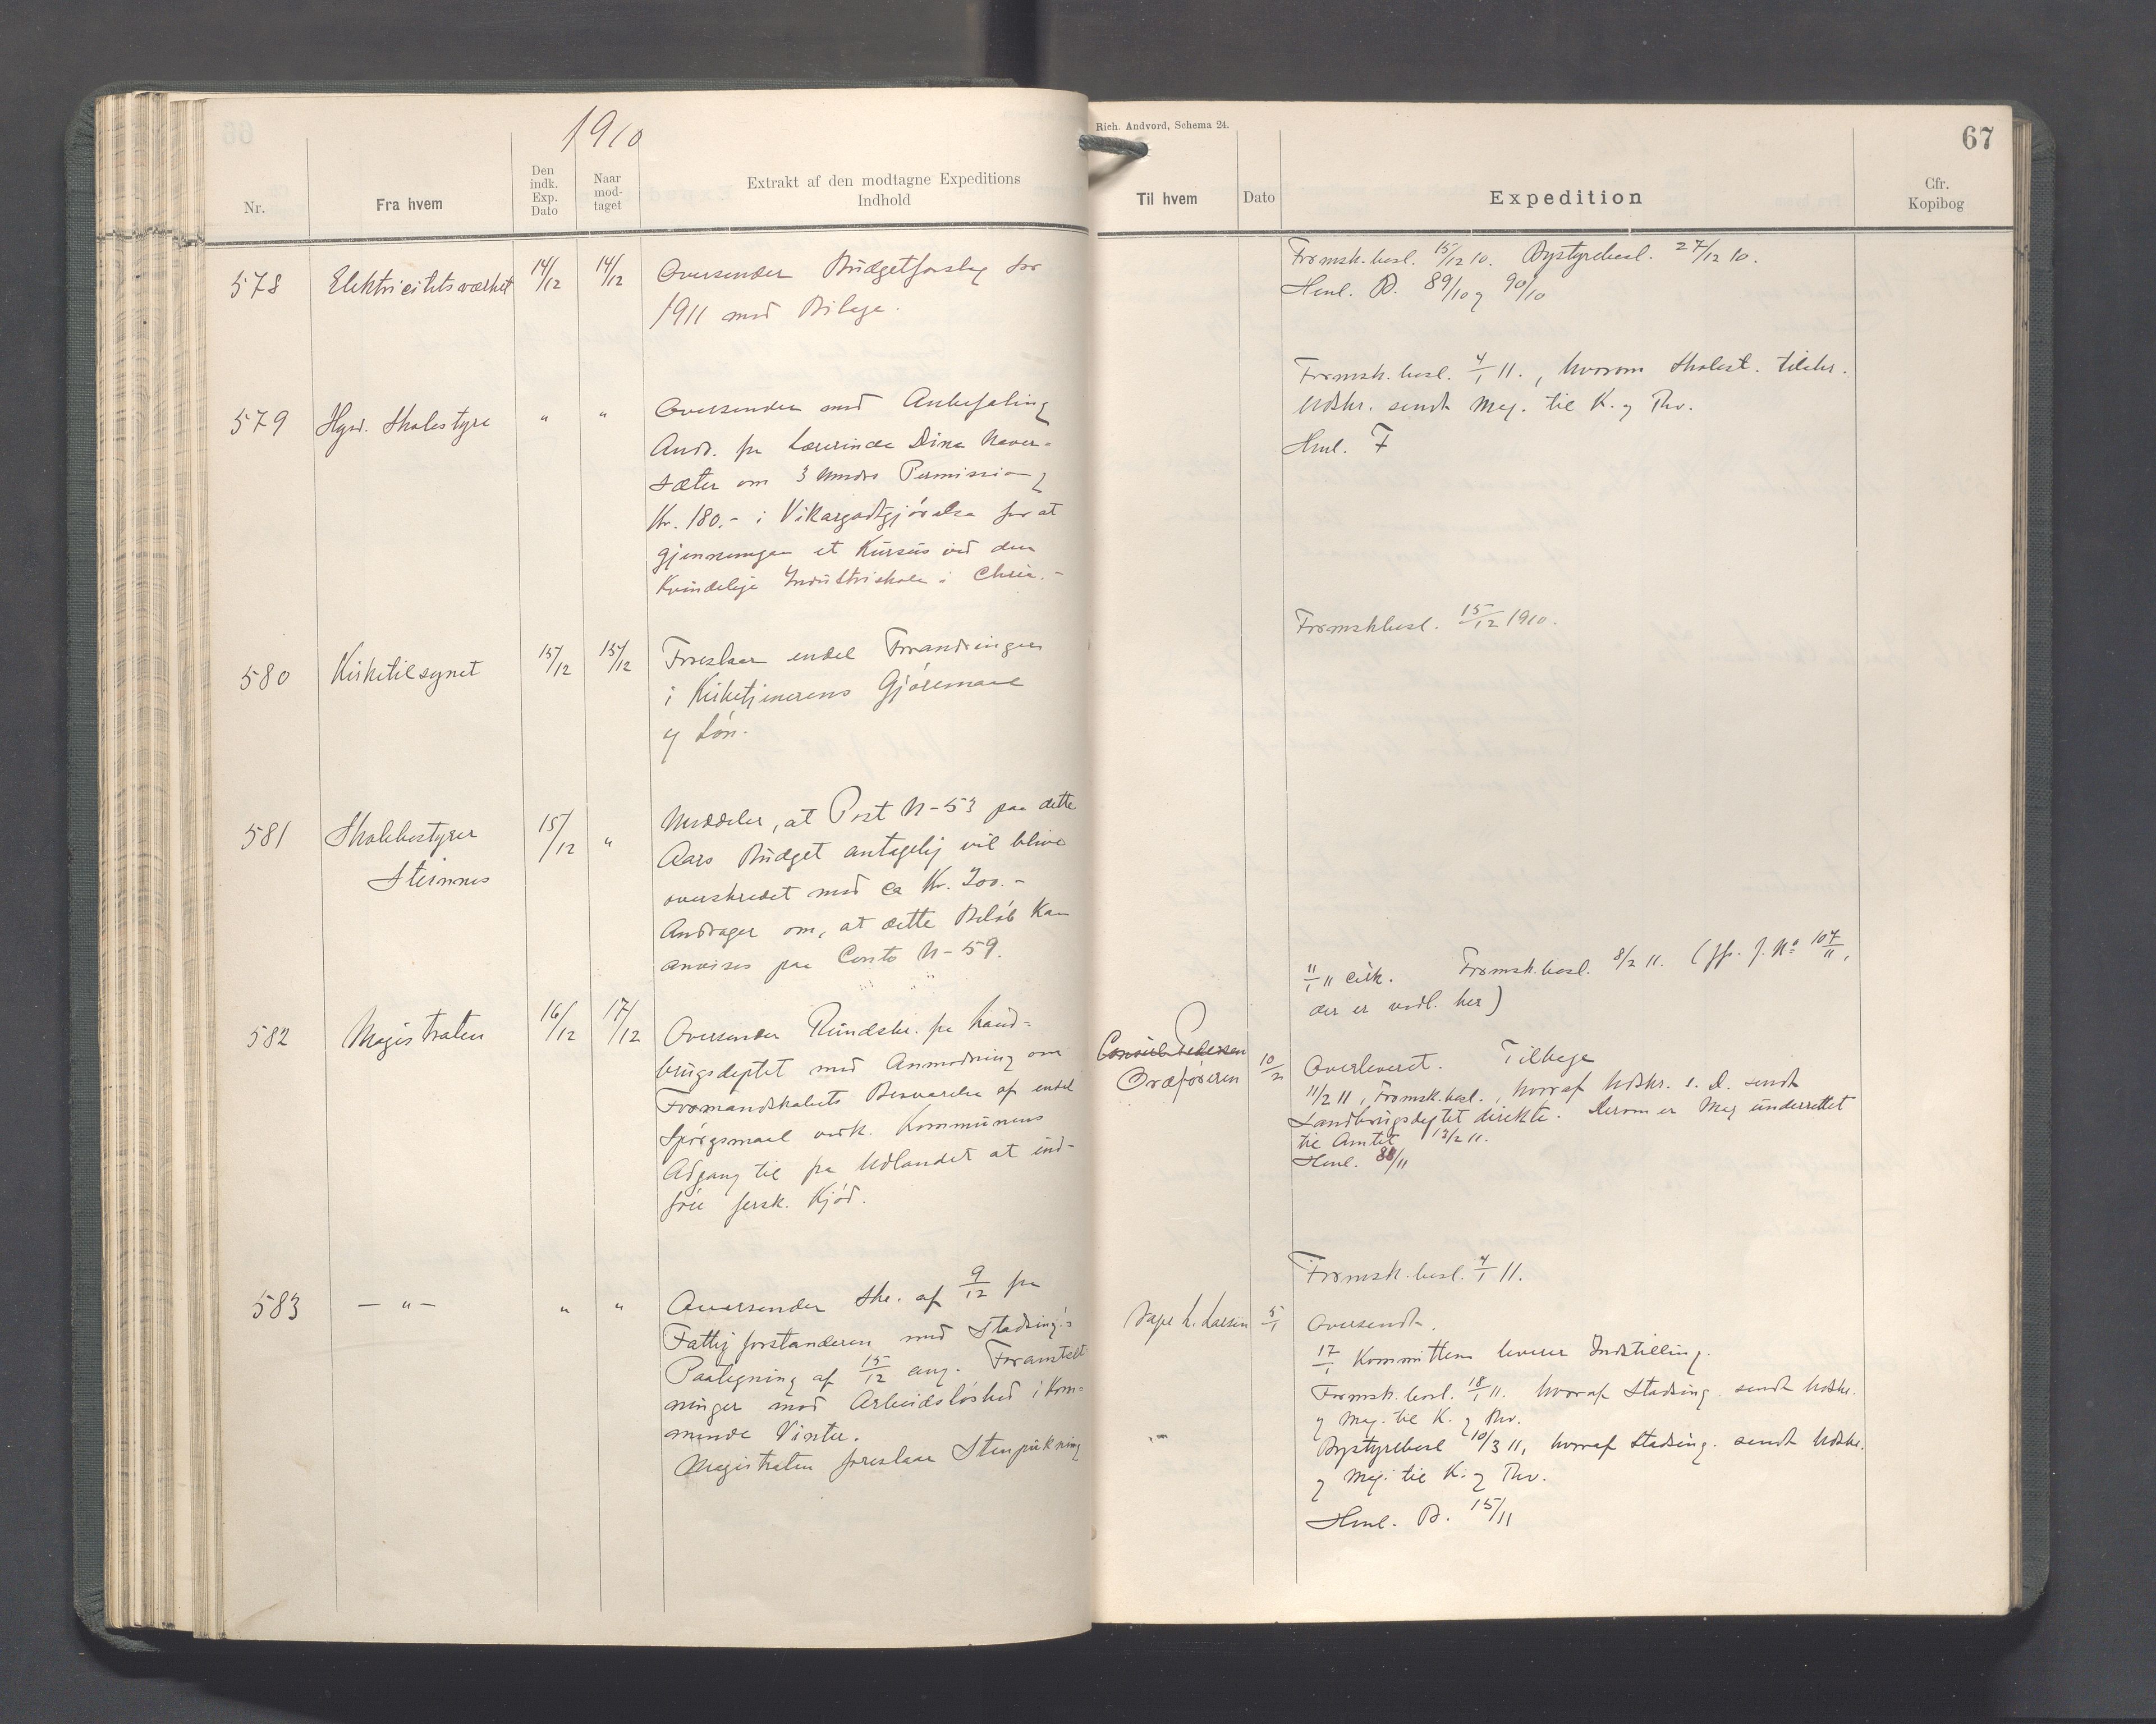 1910
Nr.
Fra hvem
Den indk. Exp. Dato
Naar mod-taget
Extrakt af den modtagne Expeditions Indhold
578
Elektricitetsværket
14/12
14/12
Oversender Budgetforslag for
1911 med Bilage.
579
Hgsd. Skolestyre
"
"
Oversender med Anbefaling
Andr. fra Lærerinde Dina
sæter om 3 Mndrs Permission og
Kr. 180.- i Vikargodtgjörelse for at
gjennemgaa et Kursus ved den
Kvindelige Industriskole i Chria.-
580
Kirketilsynet
15/12
15/12
Foreslaar endel Forandringer
i Kirketjenerens Gjöremaal
og Lön.
581
Skolebestyrer
Steinnes
15/12
"
Meddeler, at Post N-53 paa dette
Aars Budget antagelig vil blive
overskredet med ca Kr. 200.-
Andrager om, at dette Beløb kan
anvises paa Conto N-59.
582
Magistraten
16/12
17/12
Oversender Rundskr. fra Land-
brugsdeptet med Anmodning om
Formandskabets Besvarelse af endel
Spörgsmaal vedk. Kommunens
Adgang til fra Udlandet at ind-
före fersk. Kjöd.
583
- " -
"
"
Oversender Skr. af 9/12 fra
Fattigforstanderen med Stadsing.'s
Paategning af 15/12 ang. Foranstalt-
ninger mod Arbeidslöshed i kom-
mende Vinter.
Magistraten foreslaar Stenpukning
Rich. Andvord, Schema 24.
67
Til hvem
Dato
Expedition
Cfr. Kopibog
Formsk.besl. 15/12 10. Bystyrebesl. 27/12 10.
Henl. B. 89/10 og 90/10
Formsk.besl. 4/1 11., hvorom Skolest. tilskr.
Udskr. sendt Mag. til K. og Thv.
Henl. F
Formskbesl. 15/12 1910.
11/1 11 cirk. Formsk.besl. 8/2 11. (jfr. J. No 107/11,
der er vedl. her)
Consul Pedersen
Ordföreren
10/2
Overleveret. Tilbage
11/2 11, Formsk.besl., hvoraf Udskr. s. D. sendt
Landbrugsdeptet direkte. Herom er Mag underrettet
til Amtet 13/2 11.
Henl. 88/11
Formsk.besl. 4/1 11.
L. Larsen
5/1
Oversendt.
17/1 Kommitteen leverer Indstilling.
Formsk.besl. 18/1 11. hvoraf Stadsing. sendt Udskr.
og Mag. til K. og Thv.
- " -
Bystyrebesl 10/3 11, hvoraf Stadsing. sendt Udskr.
og Mag. til K. og Thv.
Henl. B. 15/11